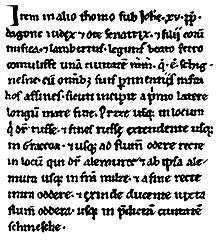 Item in alio thomo sub Iohe. xv. pp.
dagone iudex & ote senatrix. & filii eorū
misica. & lambertus. legunt̄ beato petro
contulisse unā ciuitatē in int. q. ē. schig
nesne. cū omib; suis ptinentiis infra
hos affines. sicuti incipit a pmo latere
longū mare fine. Pruzze usq; in locum
q̄ dr̄ russe. & fines russe extendente usq;
in craccoa. & usq; ad flum̄ odere recte
in locū qui dr̄ alemure & ab ipsa ale
mura usq; in trā milze. & a fine recte
intra oddere. & exinde ducente iuxta
flum̄ oddera. usq; in p̄dictā ciuitatē
schinesche.